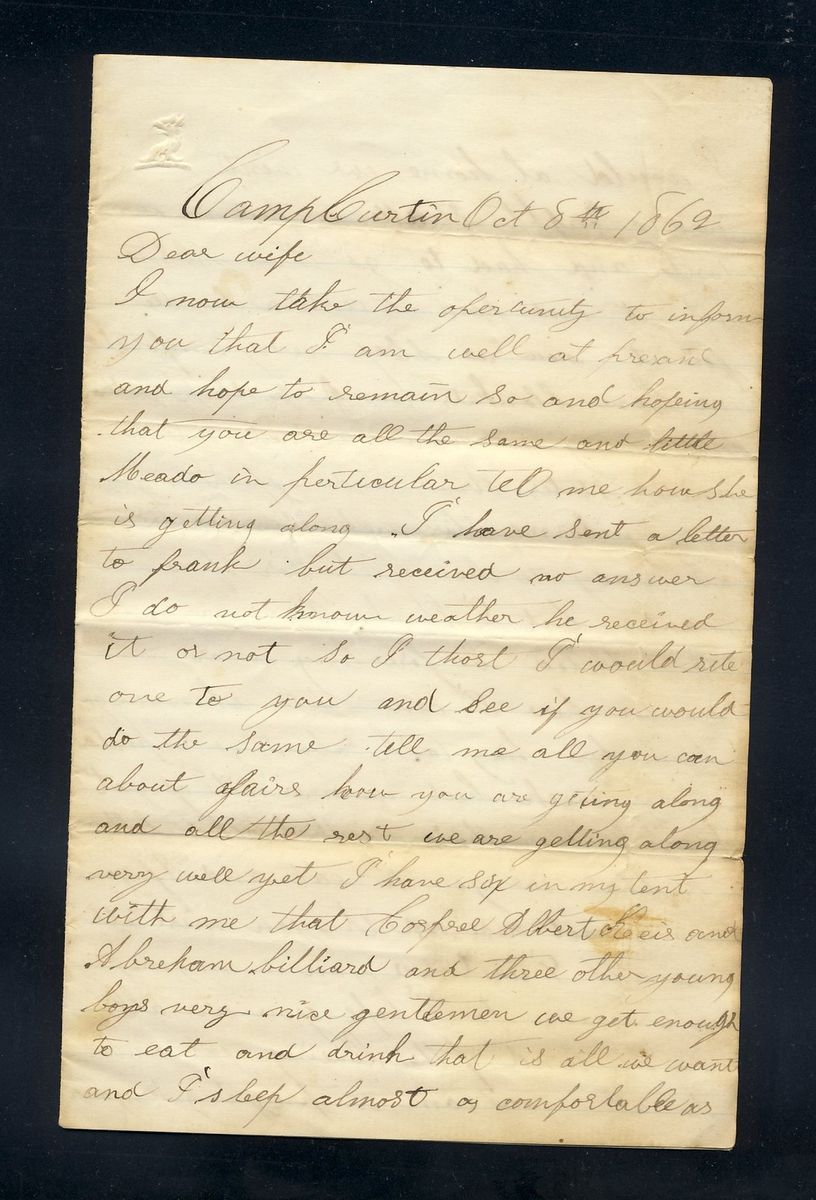 Camp Curtin Oct 8th 1862
Dear wife
I now take the opertunity to inform
you that I am well at presant
and hope to remain so and hopeing
that you are all the same and little
Meado in perticular tell me how she
is getting along I have sent a letter
to frank but received no answer
I do not know weather he received
it or not so I thort I would rite
one to you and see if you would
do the same tell me all you can
about afairs how you are geting along
and all the rest we are getting along
very well yet I have six in my tent
with me that Albert and
Abreham billiard and three other young
boys very nice gentlemen we get enough
to eat and drink that is all we want
and I sleep almost as comfortable as